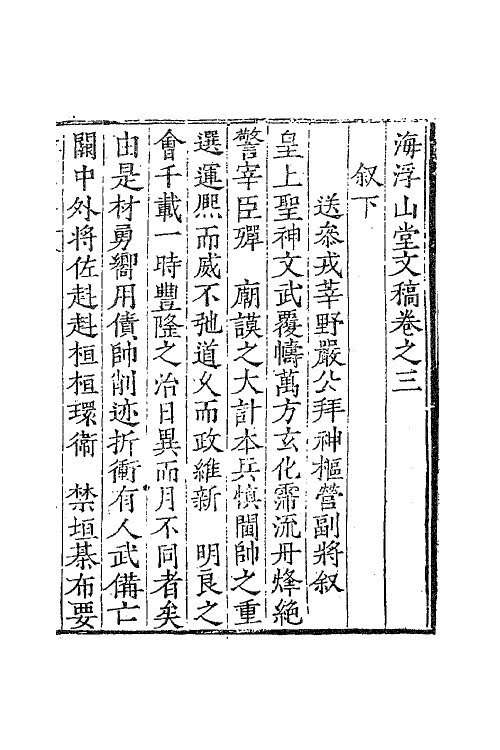 海浮山堂文稿卷之三
叙下
送叅戎莘野嚴公拜神樞營副將叙
皇上聖神文武覆幬萬方玄化霈流丹烽絶
警宰臣殫 廟謨之大計本兵慎閫帥之重
選運熈而威不弛道乂而政維新 明良之
會千載一時豐隆之治日異而月不同者矣
由是材勇嚮用債帥削迹折衝有人武備亡
闕中外將佐赳赳桓桓環衞 禁垣棊布要